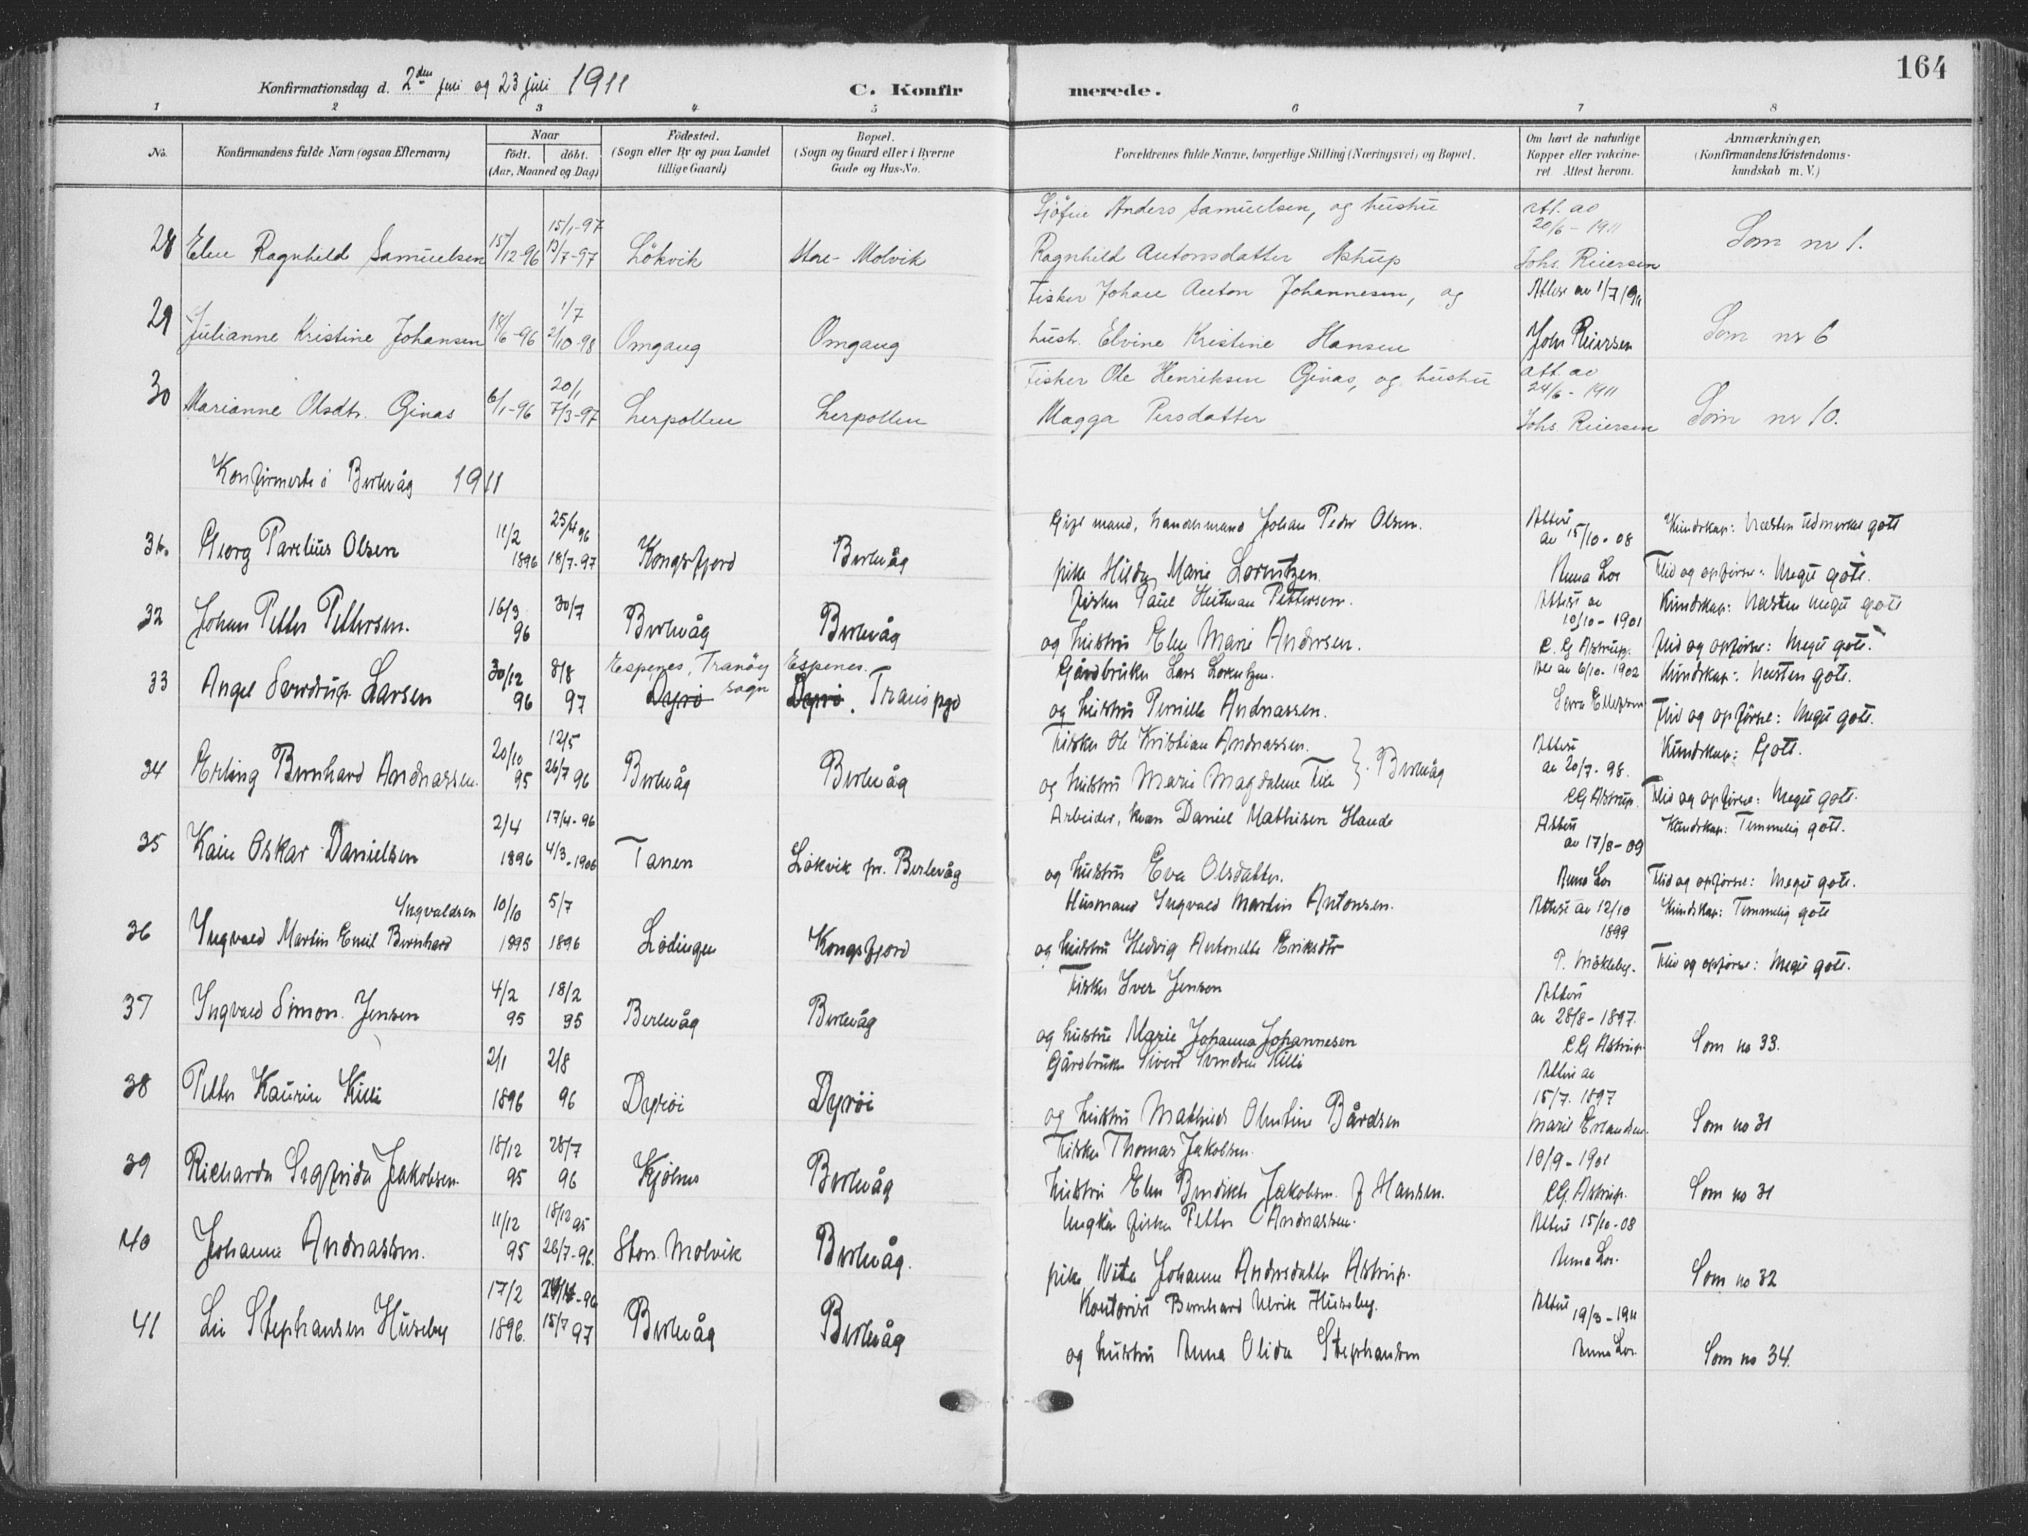 164
Konfirmationsdag d. 2den juli og 23 juli 1911 C. Konfirmerede.
1 2 3 4 5 6 7 8
No. Konfirmandens fulde Navn (ogsaa Efternavn) Naar født. døbt. (Aar, Maaned og Dag) Fødested. (Sogn eller By og paa Landet tillige Gaard) Bopæl. (Sogn og Gaard eller i Byerne Gade og Hus-No. Forældrenes fulde Navne, borgerlige Stilling (Næringsvei) og Bopæl. Om havt de naturlige Kopper eller vakcineret. Attest herom. Anmærkninger. (Konfirmandens Kristendomskundskab m. V.)
28 Elen Ragnhild Samuelsen 15/12-96 15/1-97 13/7-97 Løkvik Store-Molvik Anders Samuelsen, og hustru Ragnhild Antonsdatter Astrup att. av 20/6-1911 Johs. Reiersen Som nr 1.
29 Julianne Kristine Johansen 18/6-96 1/7 2/10-98 Omgang Omgang Fisker Johan Anton Johannesen, og hustr. Elvine Kristine Hansen Attest av 1/7 1911 Johs Reiersen Som nr 6
30 Marianne Olsdtr. Ginas 6/1-96 20/1 7/3-97 Lerpollen Lerpollen Fisker Ole Henriksen Ginas, og hustru Magga Persdatter att. av 24/6-1911 Johs. Reiersen Som nr 10.
Konfirmerte i Berlevåg 1911
31. Georg Parelius Olsen 11/2 1896 25/4 96 18/7-97 Kongsfjord Berlevåg Gift mand, handelsmand Johan Peder Olsen. pike Hilda Marie Lorentzen. Attest av 15/10-08 Anna Los Kundskap: Næsten udmerket godt Flid og opførse: Meget godt.
32 Johan Petter Pettersen. 16/3 96 30/7 Berlevåg Berlevåg fisker Paul Heitman Pettersen. og hustru Elen Marie Andersen. Attest av 10/10-1901 C. G Astrup. Kundskap: Næsten meget godt Flid og opførse: Meget godt.
33 Angel Sverdrup Larsen 30/12 96 8/8 97 Espenes, Tranøy sogn Dyrø Espenes. Dyrø. Tranø pgd Gårdbruker Lars Lorentzen. og hustru Pernille Andreassen. Att av 6/10-1902 Ellefsen Kundskap: Næsten godt. Flid og opførse: Meget godt.
34 Erling Bernhard Andreassen. 20/10 95 12/5 26/7 96 Berlevåg Berlevåg Fisker Ole Kristian Andreassen. og hustru Marie Magdalene } Berlevåg Attest av 20/7-98. CG Astrup. Kundskap: Godt. Flid og opførse: Meget godt.
35 Kain Oskar Danielsen 2/4 1896 17/4-96 4/3-1906 Tanen Løkvik pr. Berlevåg Arbeider, kvæn Daniel Mathisen Haude og hustru Eva Olsdatter. Attest av 17/8-09 Anna Los Kundskap: Temmelig godt. Flid og opførse: Meget godt.
36 Ingvald Martin Emil Bernhard Ingvaldsen 10/10 1895 5/7 1896 Lødingen Kongsfjord Husmand Ingvald Martin Antonsen. og hustru Hedvig Antonette Eriksdtr Attest av 12/10 1899 P. Møkleby. Kundskap: Temmelig godt Flid og opførse: Meget godt.
37 Ingvald Simon Jensen 4/2 95 18/2 95 Berlevåg Berlevåg Fisker Iver Jensen og hustru Marie Johanna Johannesen Attest av 28/8-1897. CG Astrup. Som no 33.
38 Petter Kaurin Killi 2/1 1896 2/8 96 Dyrøi Dyrøi Gårdbruker Sivert Svendsen Killi og hustru Mathilde Olentine Bårdsen Attest av 15/7. 1897 Marie Erlandsen. Som no 31
39 Richarda Sigfrida Jakobsen. 18/12 95 28/7 96 Kjølnes Berlevåg Fisker Thomas Jakobsen. hustru Elen Bendikte Jakobsen f Hansen. 10/9-1901 CG. Astrup. Som no 31
40 Johanne Andreassen. 11/12 95 18/12 95 26/7-96. Store Molvik Berlevåg. Ungkar fisker Petter Andreassen. pike Nita Johanne Andersdatter Astrup. Attest 15/10-08 Anna Los. Som no 32
41 Liv Stephansen Huseby 17/2 1896. 15/7 97 Berlevåg Berlevåg Kontorist Bernhard Ulrik Huseby. og hustru Anna Olida Stephansen Attest 19/3-1911 Anna Los. Som no 34.